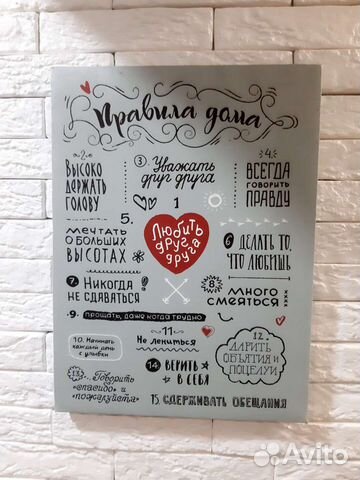 Правила дома
1
Любить
друг
друга
2
Высоко
держать
голову
3 Уважать
друг друга
4.
Всегда
говорить
правду
5.
мечтать
о больших
высотах
6 делать то,
что любишь
7. Никогда
не сдаваться
8.
много
смеяться
9. прощать, даже когда трудно
10. Начинать
каждый день
с улыбки
11
Не лениться
12.
Дарить
объятия и
поцелуи
13. Говорить
«спасибо» и
«пожалуйста»
14 Верить
в себя
15. Сдерживать обещания
Avito